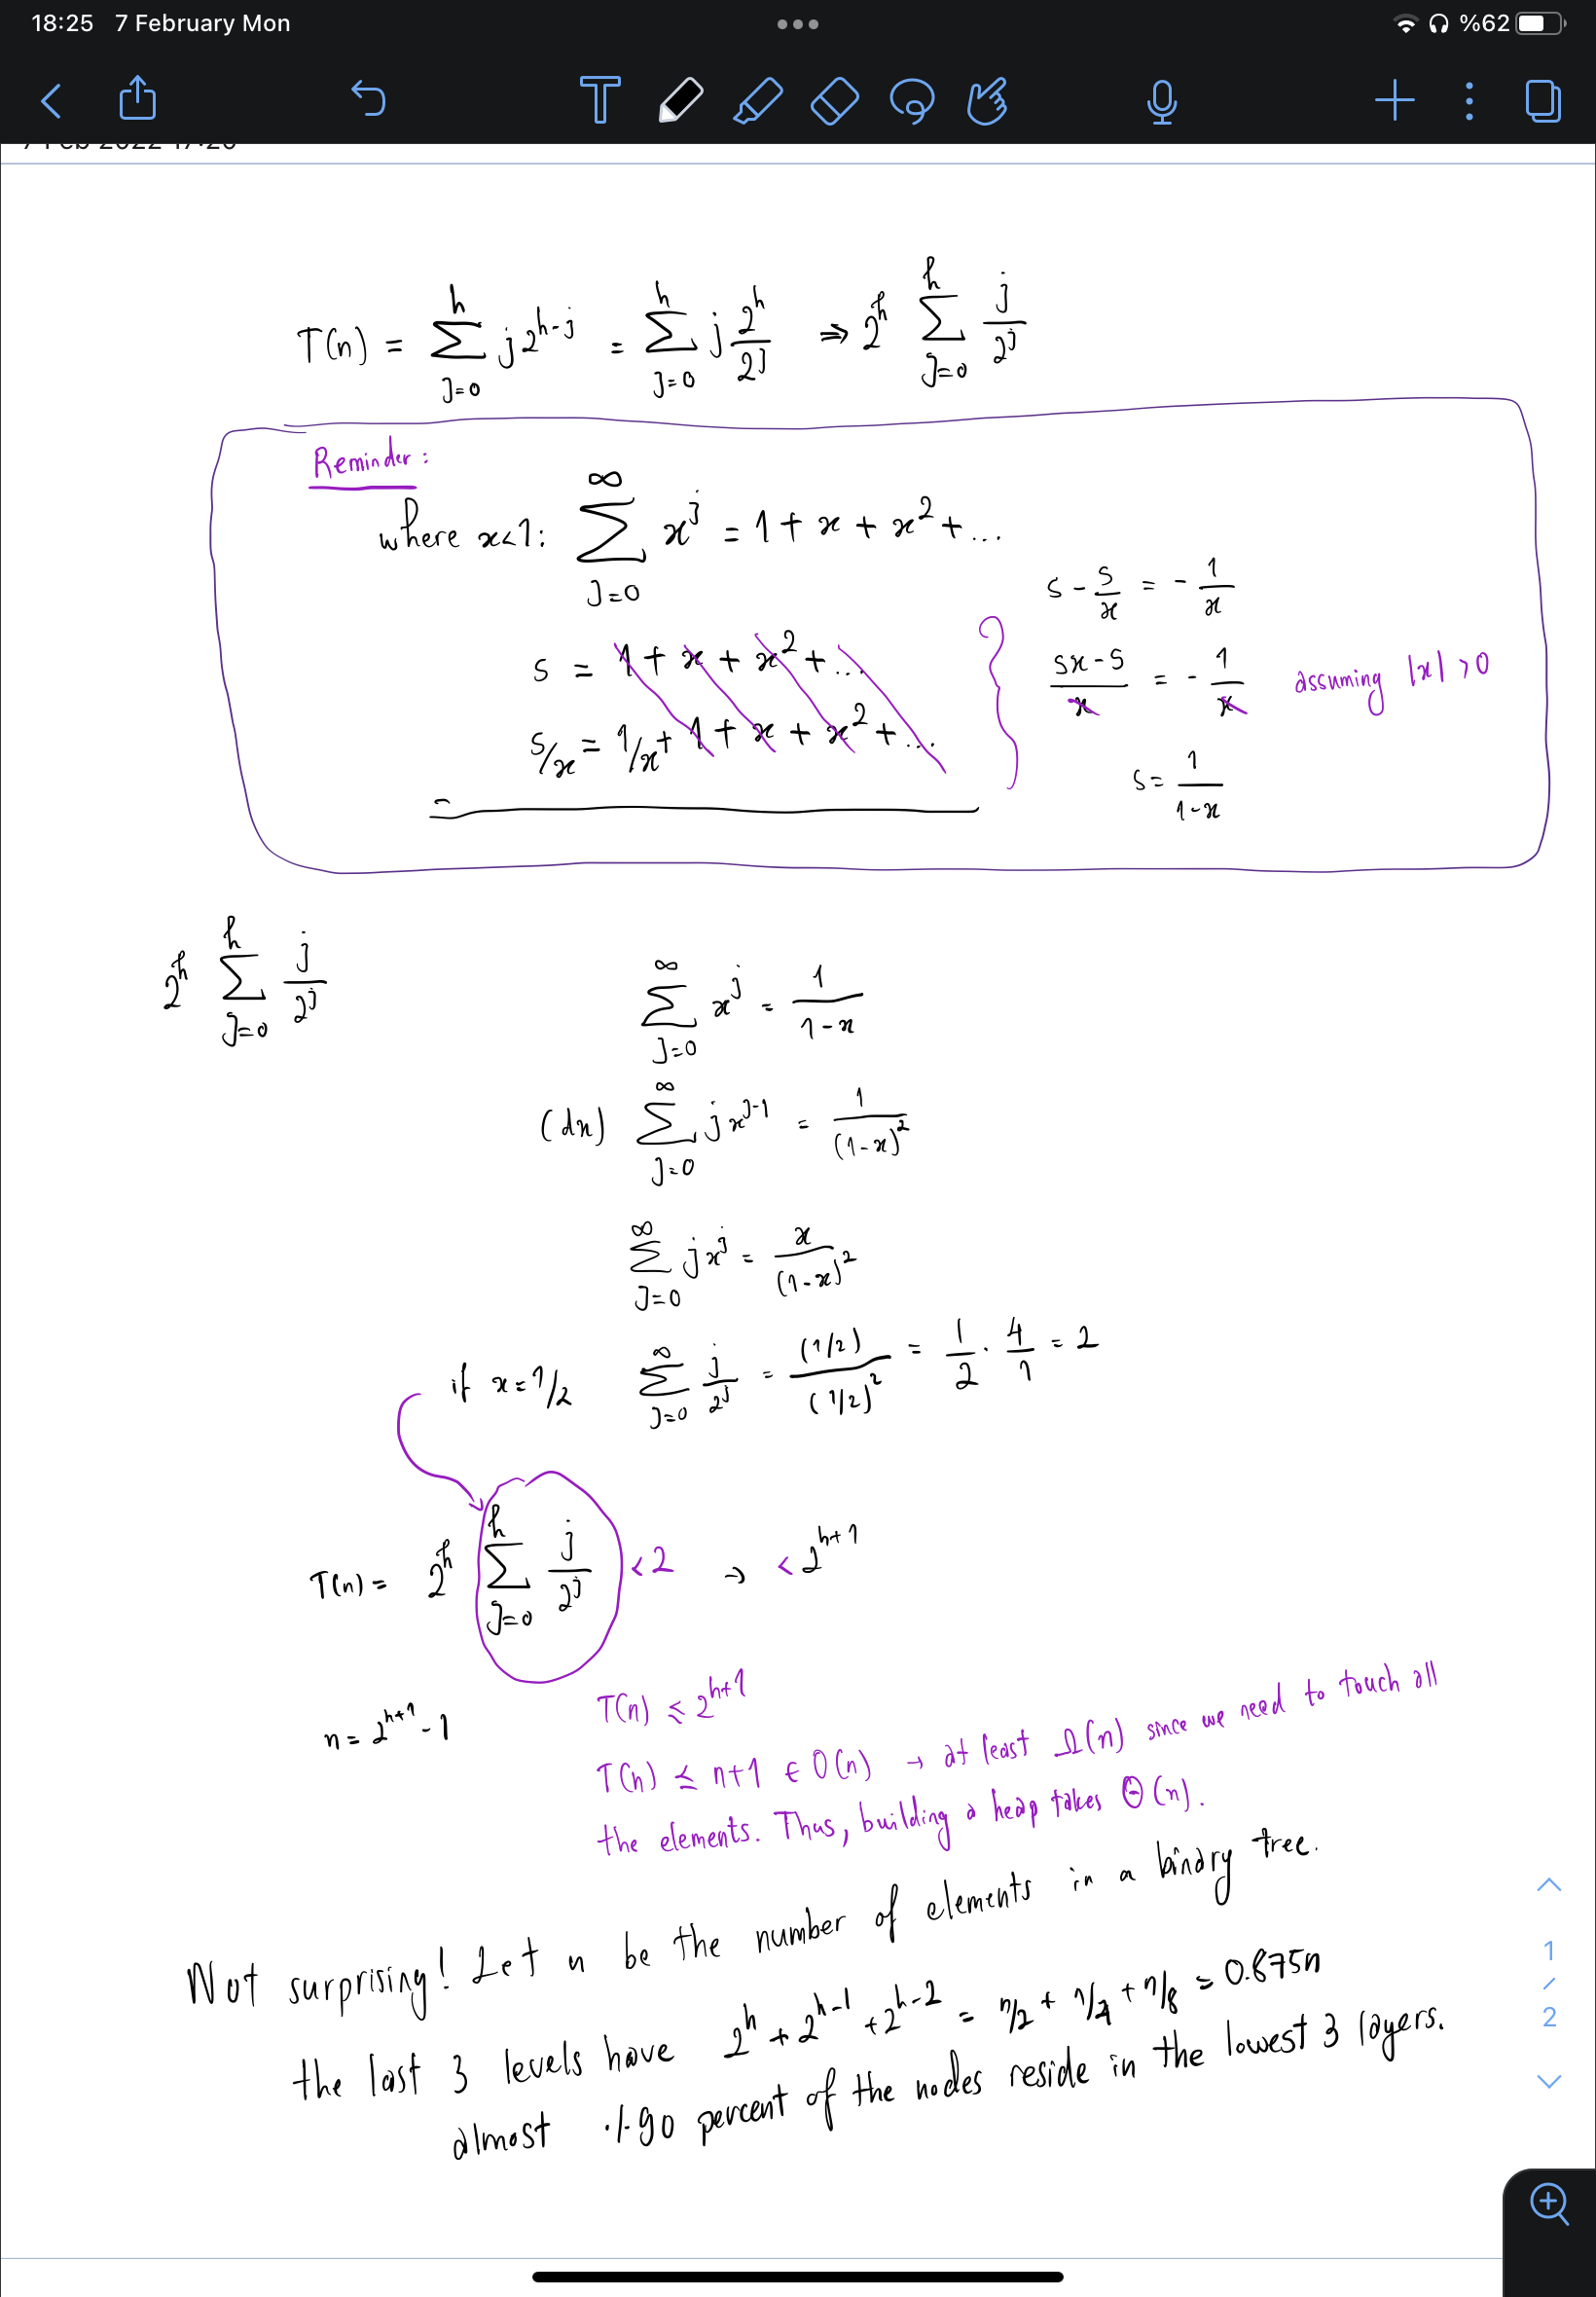 18:25 7 February Mon %62
7 Feb 2022 17:20
T(n) = ∑_{J=0}^{h} j 2^{h-j} = ∑_{J=0}^{h} j 2^h/2^j ⇒ 2^h ∑_{J=0}^{h} j/2^j
Reminder:
where x<1: ∑_{J=0}^{∞} x^j = 1 + x + x^2 + ...
s - s/x = - 1/x
s = 1 + x + x^2 + ...
(sx - s)/x = - 1/x assuming |x| > 0
s/x = 1/x + 1 + x + x^2 + ...
s = 1/(1-x)
2^h ∑_{J=0}^{h} j/2^j
∑_{J=0}^{∞} x^j = 1/(1-x)
(dx) ∑_{J=0}^{∞} j x^{j-1} = 1/(1-x)^2
∑_{J=0}^{∞} j x^j = x/(1-x)^2
if x = 1/2 ∑_{J=0}^{∞} j/2^j = (1/2)/(1/2)^2 = 1/2 · 4/1 = 2
T(n) = 2^h ∑_{J=0}^{h} j/2^j < 2 → < 2^{h+1}
n = 2^{h+1} - 1
T(n) ≤ 2^{h+1}
T(n) ≤ n+1 ∈ O(n) → at least Ω(n) since we need to touch all
the elements. Thus, building a heap takes Θ(n).
Not surprising! Let n be the number of elements in a binary tree.
the last 3 levels have 2^h + 2^{h-1} + 2^{h-2} = n/2 + n/4 + n/8 = 0.875n
almost %90 percent of the nodes reside in the lowest 3 layers.
1
/
2